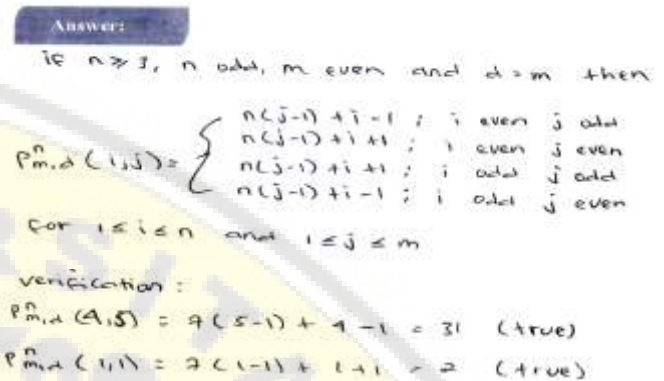 Answer:
if n ≥ 3, n odd, m even and d = m then
n(j-1) + i - 1 ; i even j odd
n(j-1) + i + 1 ; i even j even
P^n_{m,d} (i,j) =
n(j-1) + i + 1 ; i odd j odd
n(j-1) + i - 1 ; i odd j even
for 1 ≤ i ≤ n and 1 ≤ j ≤ m
verification :
P^n_{m,d} (4,5) = 7(5-1) + 4 - 1 = 31 (true)
P^n_{m,d} (1,1) = 7(1-1) + 1+1 = 2 (true)